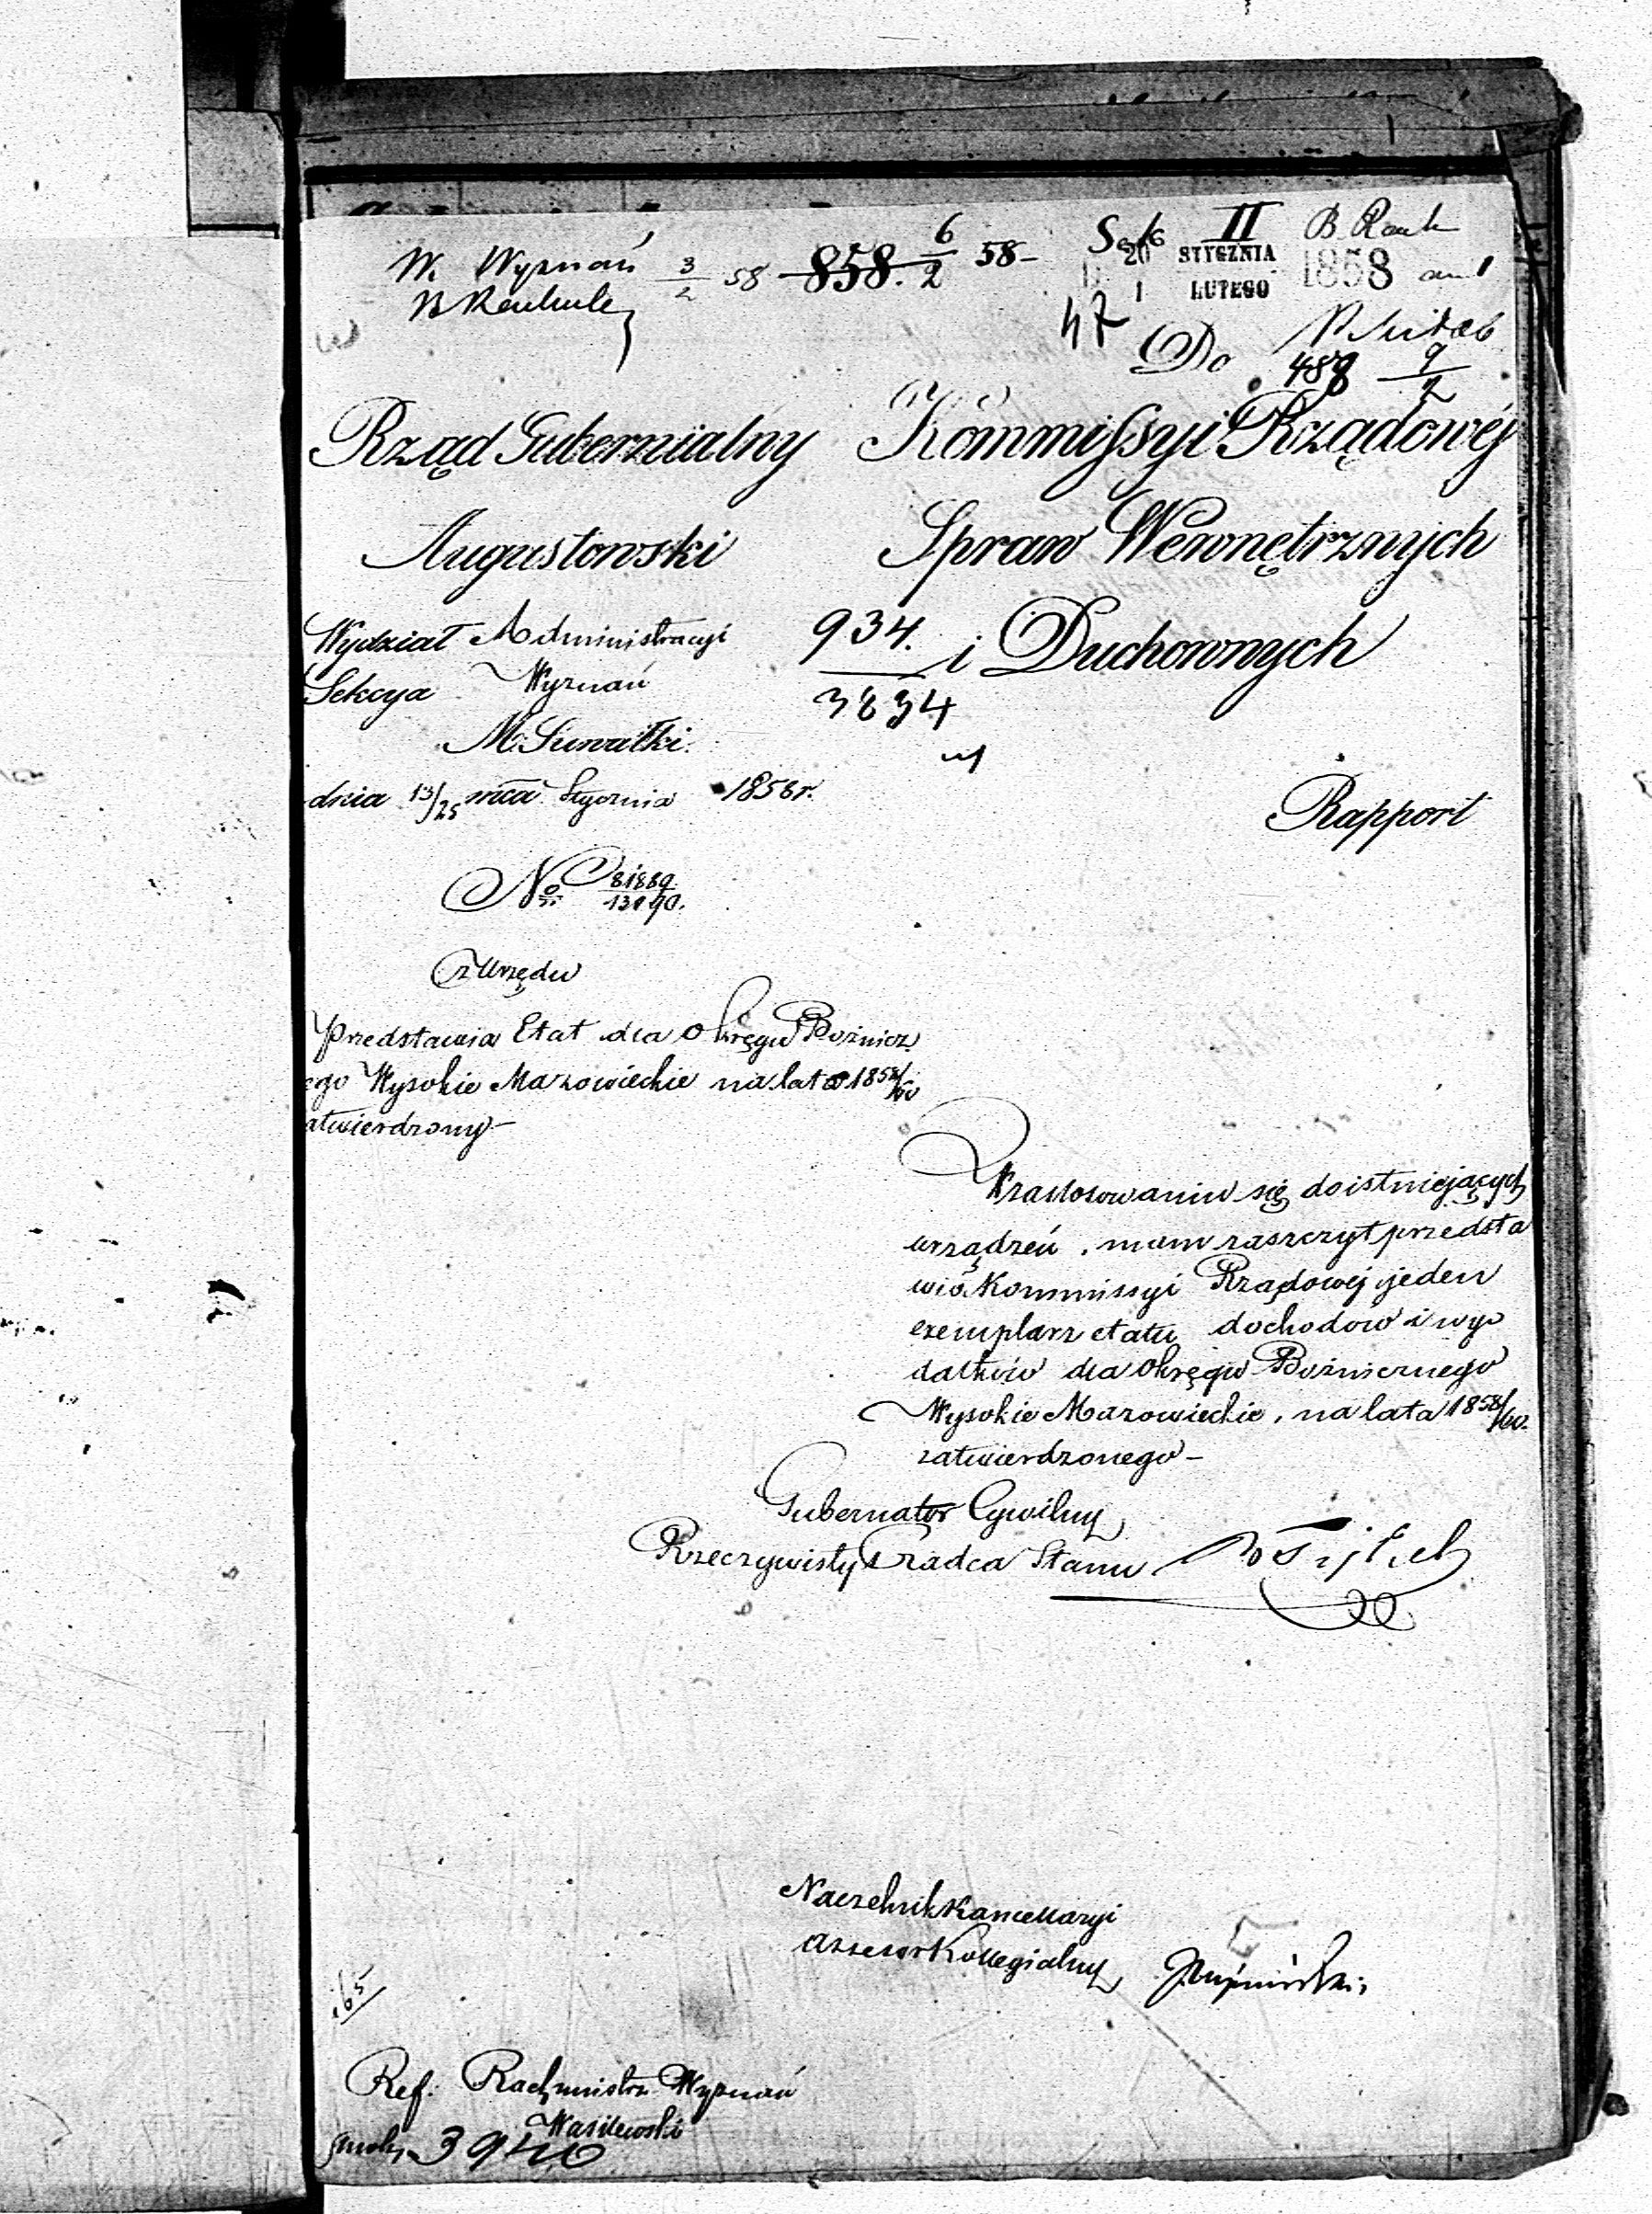 W. Wyznań 3/2 58 858. 6/2 58-
Sek II B. Rach
20 STYCZNIA 1858
1 LUTEGO
47
Do
488 9/2
Rząd Gubernialny
Augustowski
Wydział Administracyi
Sekcya Wyznań
M. Suwałki.
dnia 13/25 mca Stycznia 1858 r.
No 81889
z Urzędu
Przedstawia Etat dla Okręgu Bóżnicz
ego Wysokie Mazowieckie na lata 1858/60
atwierdzony-
Kommissyi Rządowéj
Spraw Wewnętrznych
i Duchownych
934.
3834
Rapport
W zastosowaniu się do istniejących
urządzeń, mam zaszczyt przedsta
wić Kommissyi Rządowej jeden
exemplarz etatu dochodów i wy
datków dla Okręgu Bóżnicznego
Wysokie Mazowieckie, na lata 1858/60.
zatwierdzonego-
Gubernator Cywilny
Rzeczywisty Radca Stanu
Naczelnik Kancellaryi
Assesor Kollegialny
165
Ref. Rachmistrz Wyznań
Wasilewski
3940